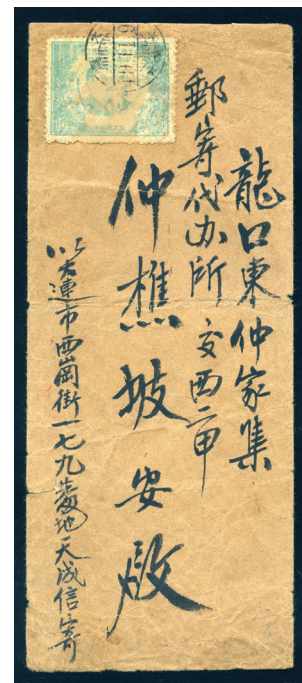 龍口東仲家集
郵寄代办所 交西二甲
仲樵坡安啟
大連市西崗街一七九番地天成信寄